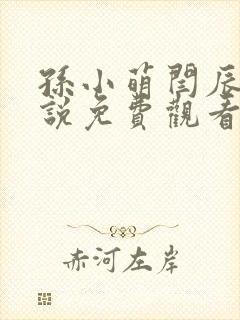 孫小萌閆辰
說免費觀看
赤河左岸